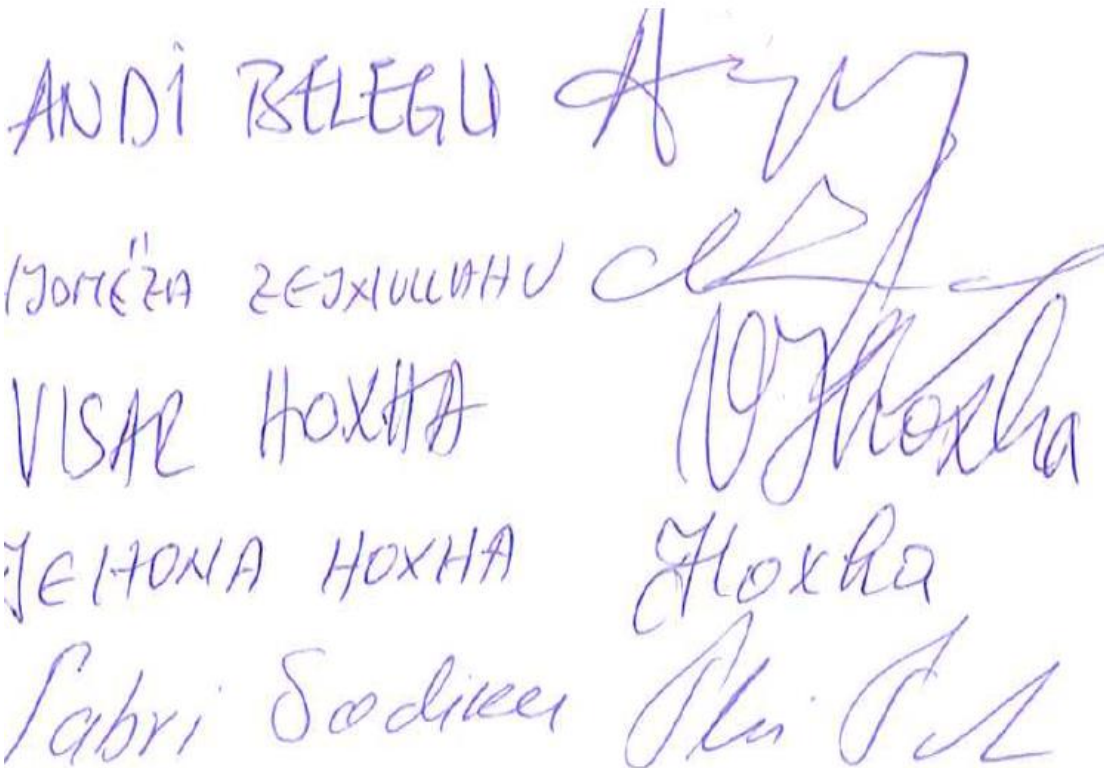 ANDI BELEGU
ZEJNULLAHU
VISAR HOXHA VHoxha
JEHONA HOXHA JHoxha
Sabri Sadiku